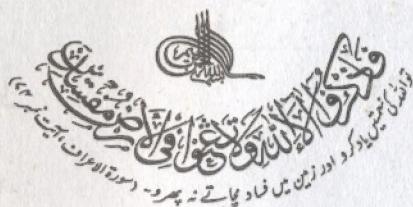 بسم الله الرحمن الرحيم
فاذكروا آلاء الله ولا تعثوا في الأرض مفسدين
تو اللہ کی نعمتیں یاد کرو اور زمین میں فساد مچاتے نہ پھرو - (سورۃ الاعراف، آیت نمبر ۷۴)